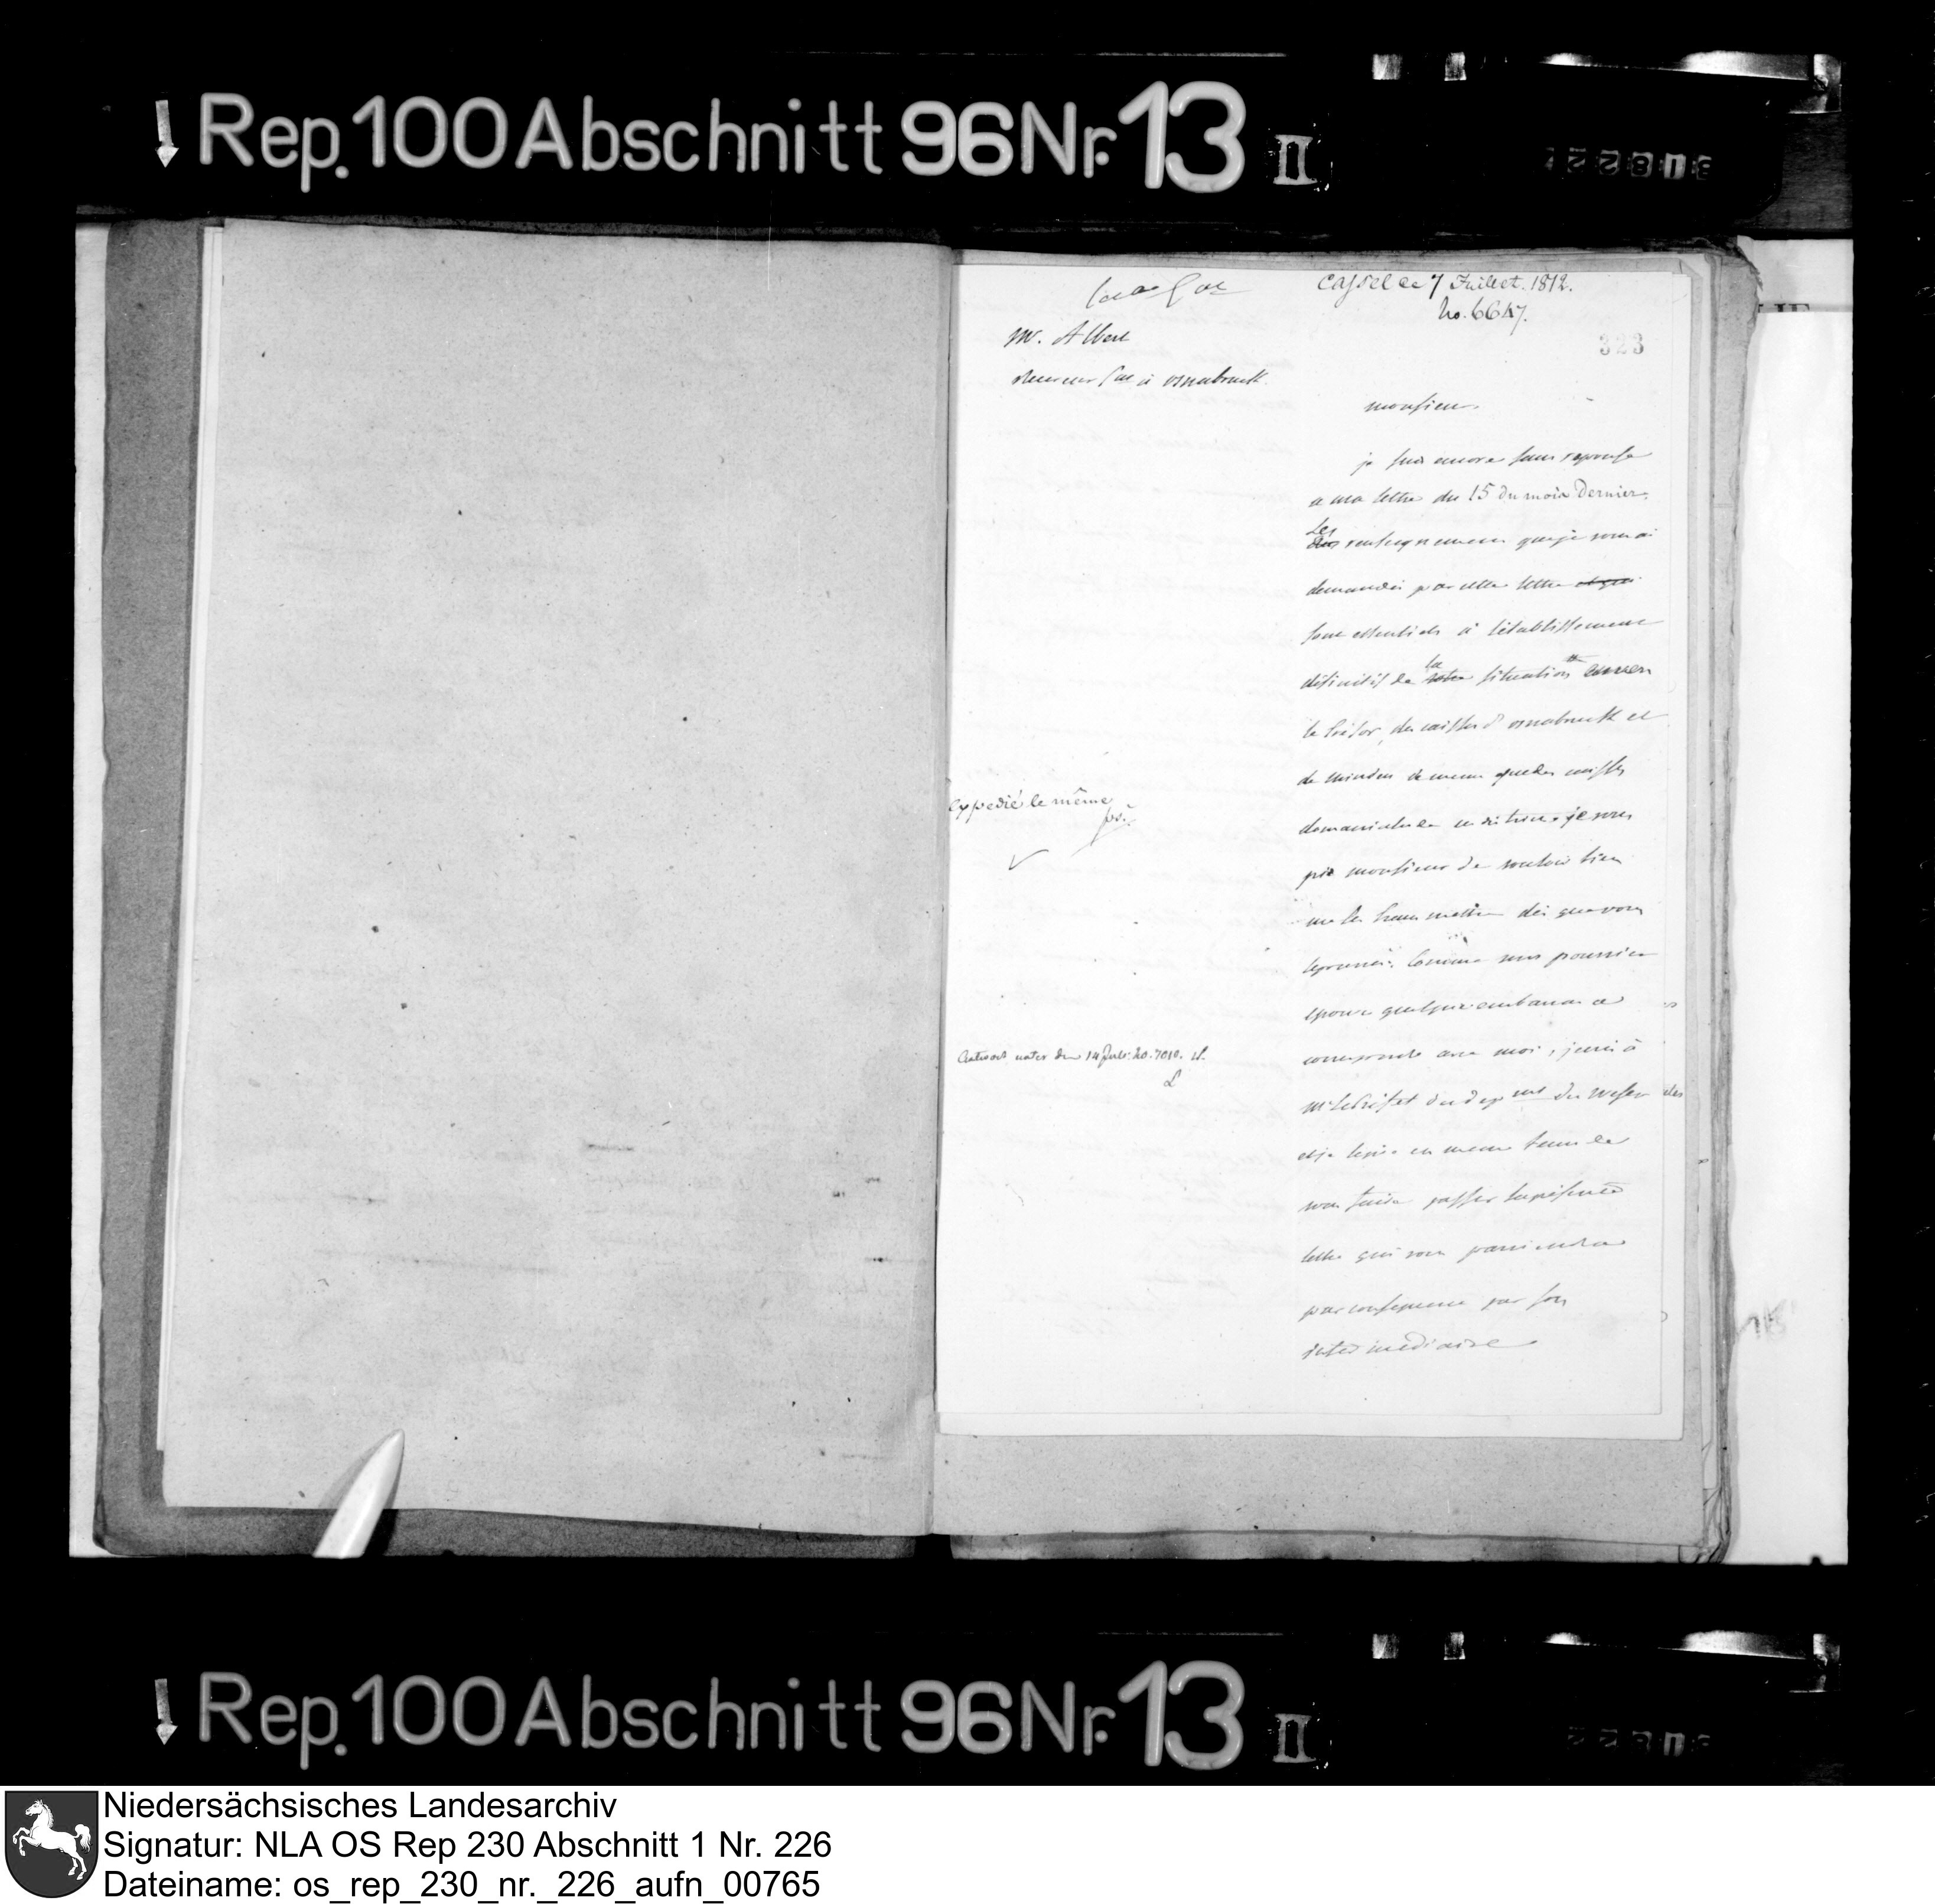 Rep. 100 Abschnitt 96 Nr. 13 II
Cassel le 7 Juillet. 1812.
No. 6647.
323
Mr. Albert
receveur à osnabruck
monsieur.
je suis encore sans reponse
a ma lettre du 15 du mois Dernier.
Les renseignemens que je vous ai
demandés par cette lettre et qui
sont essentiels à l'établissement
définitif de la situation envers
le trésor, des caisses d'osnabruck et
de minden de meme que des caisses
domaniales je vous
prie monsieur de vouloir bien
me les transmettre dès que vous
le pourrés. Comme vous pourriez
eprouver quelque embarras a
correspondre avec moi, j'ecris à
Mr le Préfet du dep ment du Weser
et je le prie en meme tems de
vous faire passer la présente
lettre qui vous parviendra
par consequent par son
intermediaire
expedié le même
jour
Antwort unter dem 14 Juli. No. 7010.
Rep. 100 Abschnitt 96 Nr. 13 II
Niedersächsisches Landesarchiv
Signatur: NLA OS Rep 230 Abschnitt 1 Nr. 226
Dateiname: os_rep_230_nr._226_aufn_00765